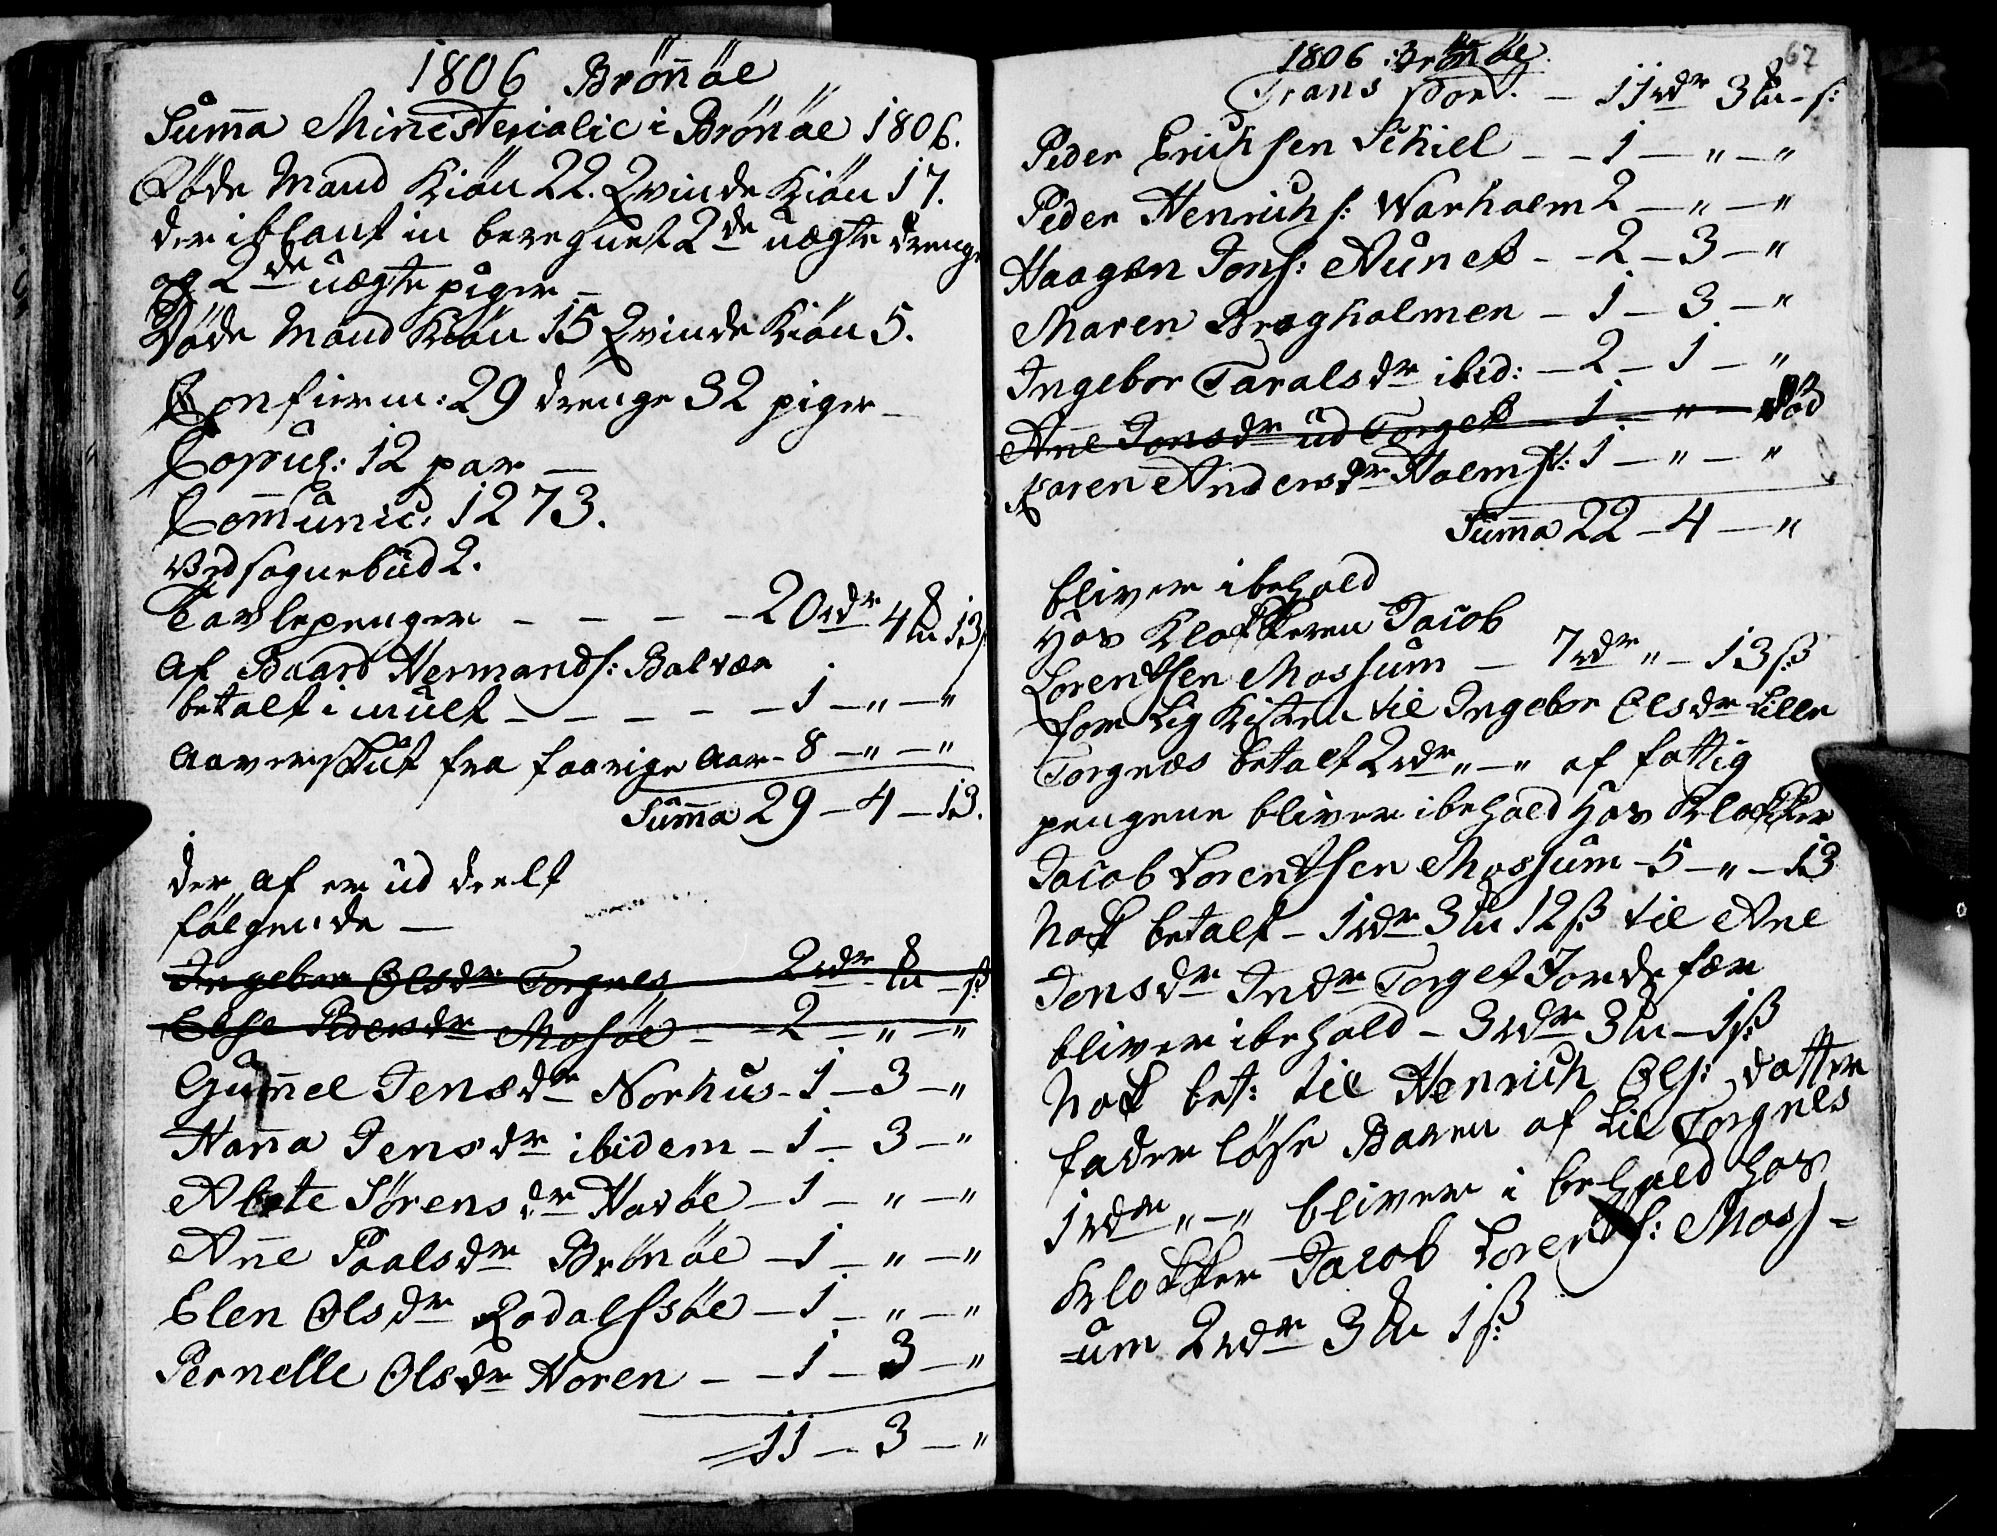 1806 Brönöe
Summa Ministerialic i Brönöe 1806.
Föde Mand Kiön 22. Qvinde Kiön 17.
der iblant in beregnet 2de uægte drenge
og 2de uægte piger –
Döde Mand Kiön 15 Qvinde Kiön 5.
Confirm: 29 drenge 32 piger –
Copul: 12 par –
Communic: 1273.
Ved sognebud 2.
Tavlepenger – – – – 20 rdr 4 ℔ 13 s
af Baard Hermands: Balvæn
betalt i mult – – – – – 1 – " – "
Aaverskut fra faarige Aar – 8 – " – "
Summa 29 – 4 – 13.
der af er ud deelt
fölgende –
Ingebor Olsdr Torgnes 2 rdr – ℔ – s
Else Pedersdr Mosöe – – 2 – " – "
Gunnel Jensdr Norhus – 1 – 3 – "
Hanna Jensdr ibidem – 1 – 3 – "
Abete Sörensdr Havöe – 1 – " – "
Anne Paalsdr Brönöe – 1 – " – "
Elen Olsdr Rodalssöe – 1 – " – "
Pernelle Olsdr Horen – – 1 – 3 – "
11 – 3 – "
67
1806 Brönöe.
Transport. – 11 rdr 3 ℔ – s:
Peder Erichsen Schiel – – 1 – " – "
Peder Henrichs: Warholm 2 – " – "
Haagen Jons: Aunet – – 2 – 3 – "
Maren Bragholmen – 1 – 3 – "
Ingebor Taralsdr ibid: – 2 – 1 – "
Anne Jonsdr ud Torget 1 – " – död
Karen Andersdr Holmst: 1 – " – "
Summa 22 – 4 – "
bliver i behold
hos Klokkeren Jacob
Lorentsen Mossum – 7 rdr " – 13 s
for Lig Kisten til Ingebor Olsdr Lille
Torgnes betalt 2 rdr " – " af fattig
pengene bliver i behold hos Klokker
Jacob Lorentsen Mossum – 5 – " – 13
Nok betalt – 1 rdr 3 ℔ 12 s til Ane
Jensdr Indr Torget Jordefær
bliver i behold – 3 rdr 3 ℔ – 1 s
Nok bet: til Henrich Ols: datter
fader löse Baren af Lil Torgnes
1 rdr " – " bliver i behold hos
Klokker Jacob Lorents: Moss-
-um 2 rdr 3 ℔ 1 s: